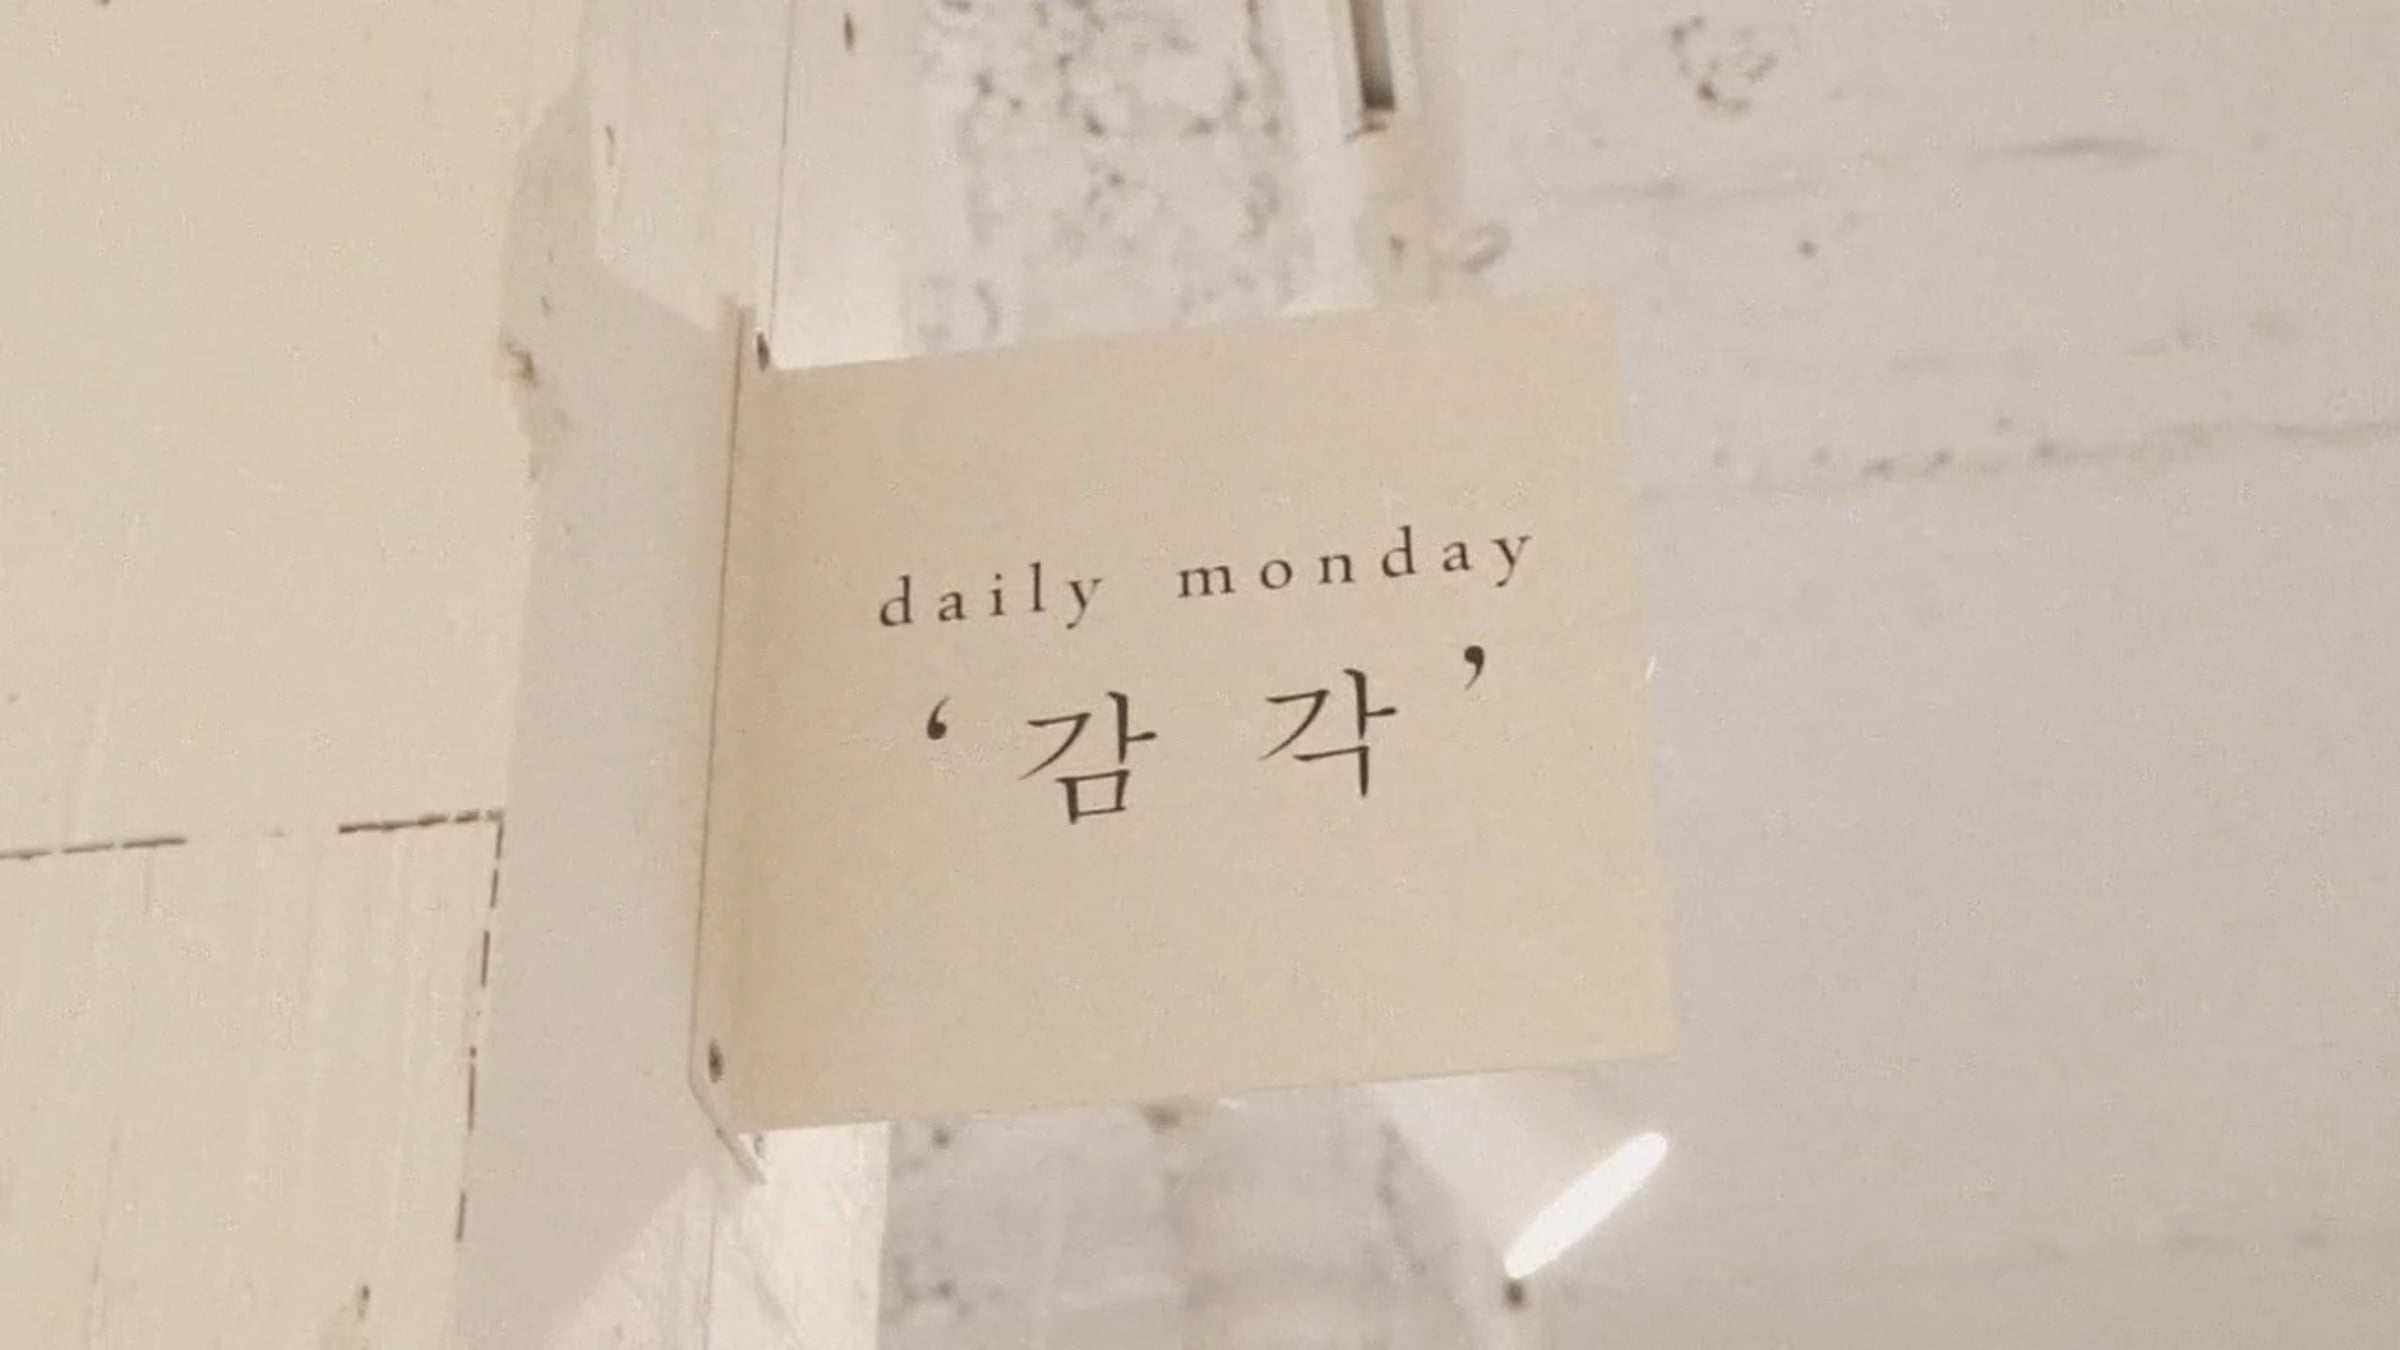 daily monday
‘감각’